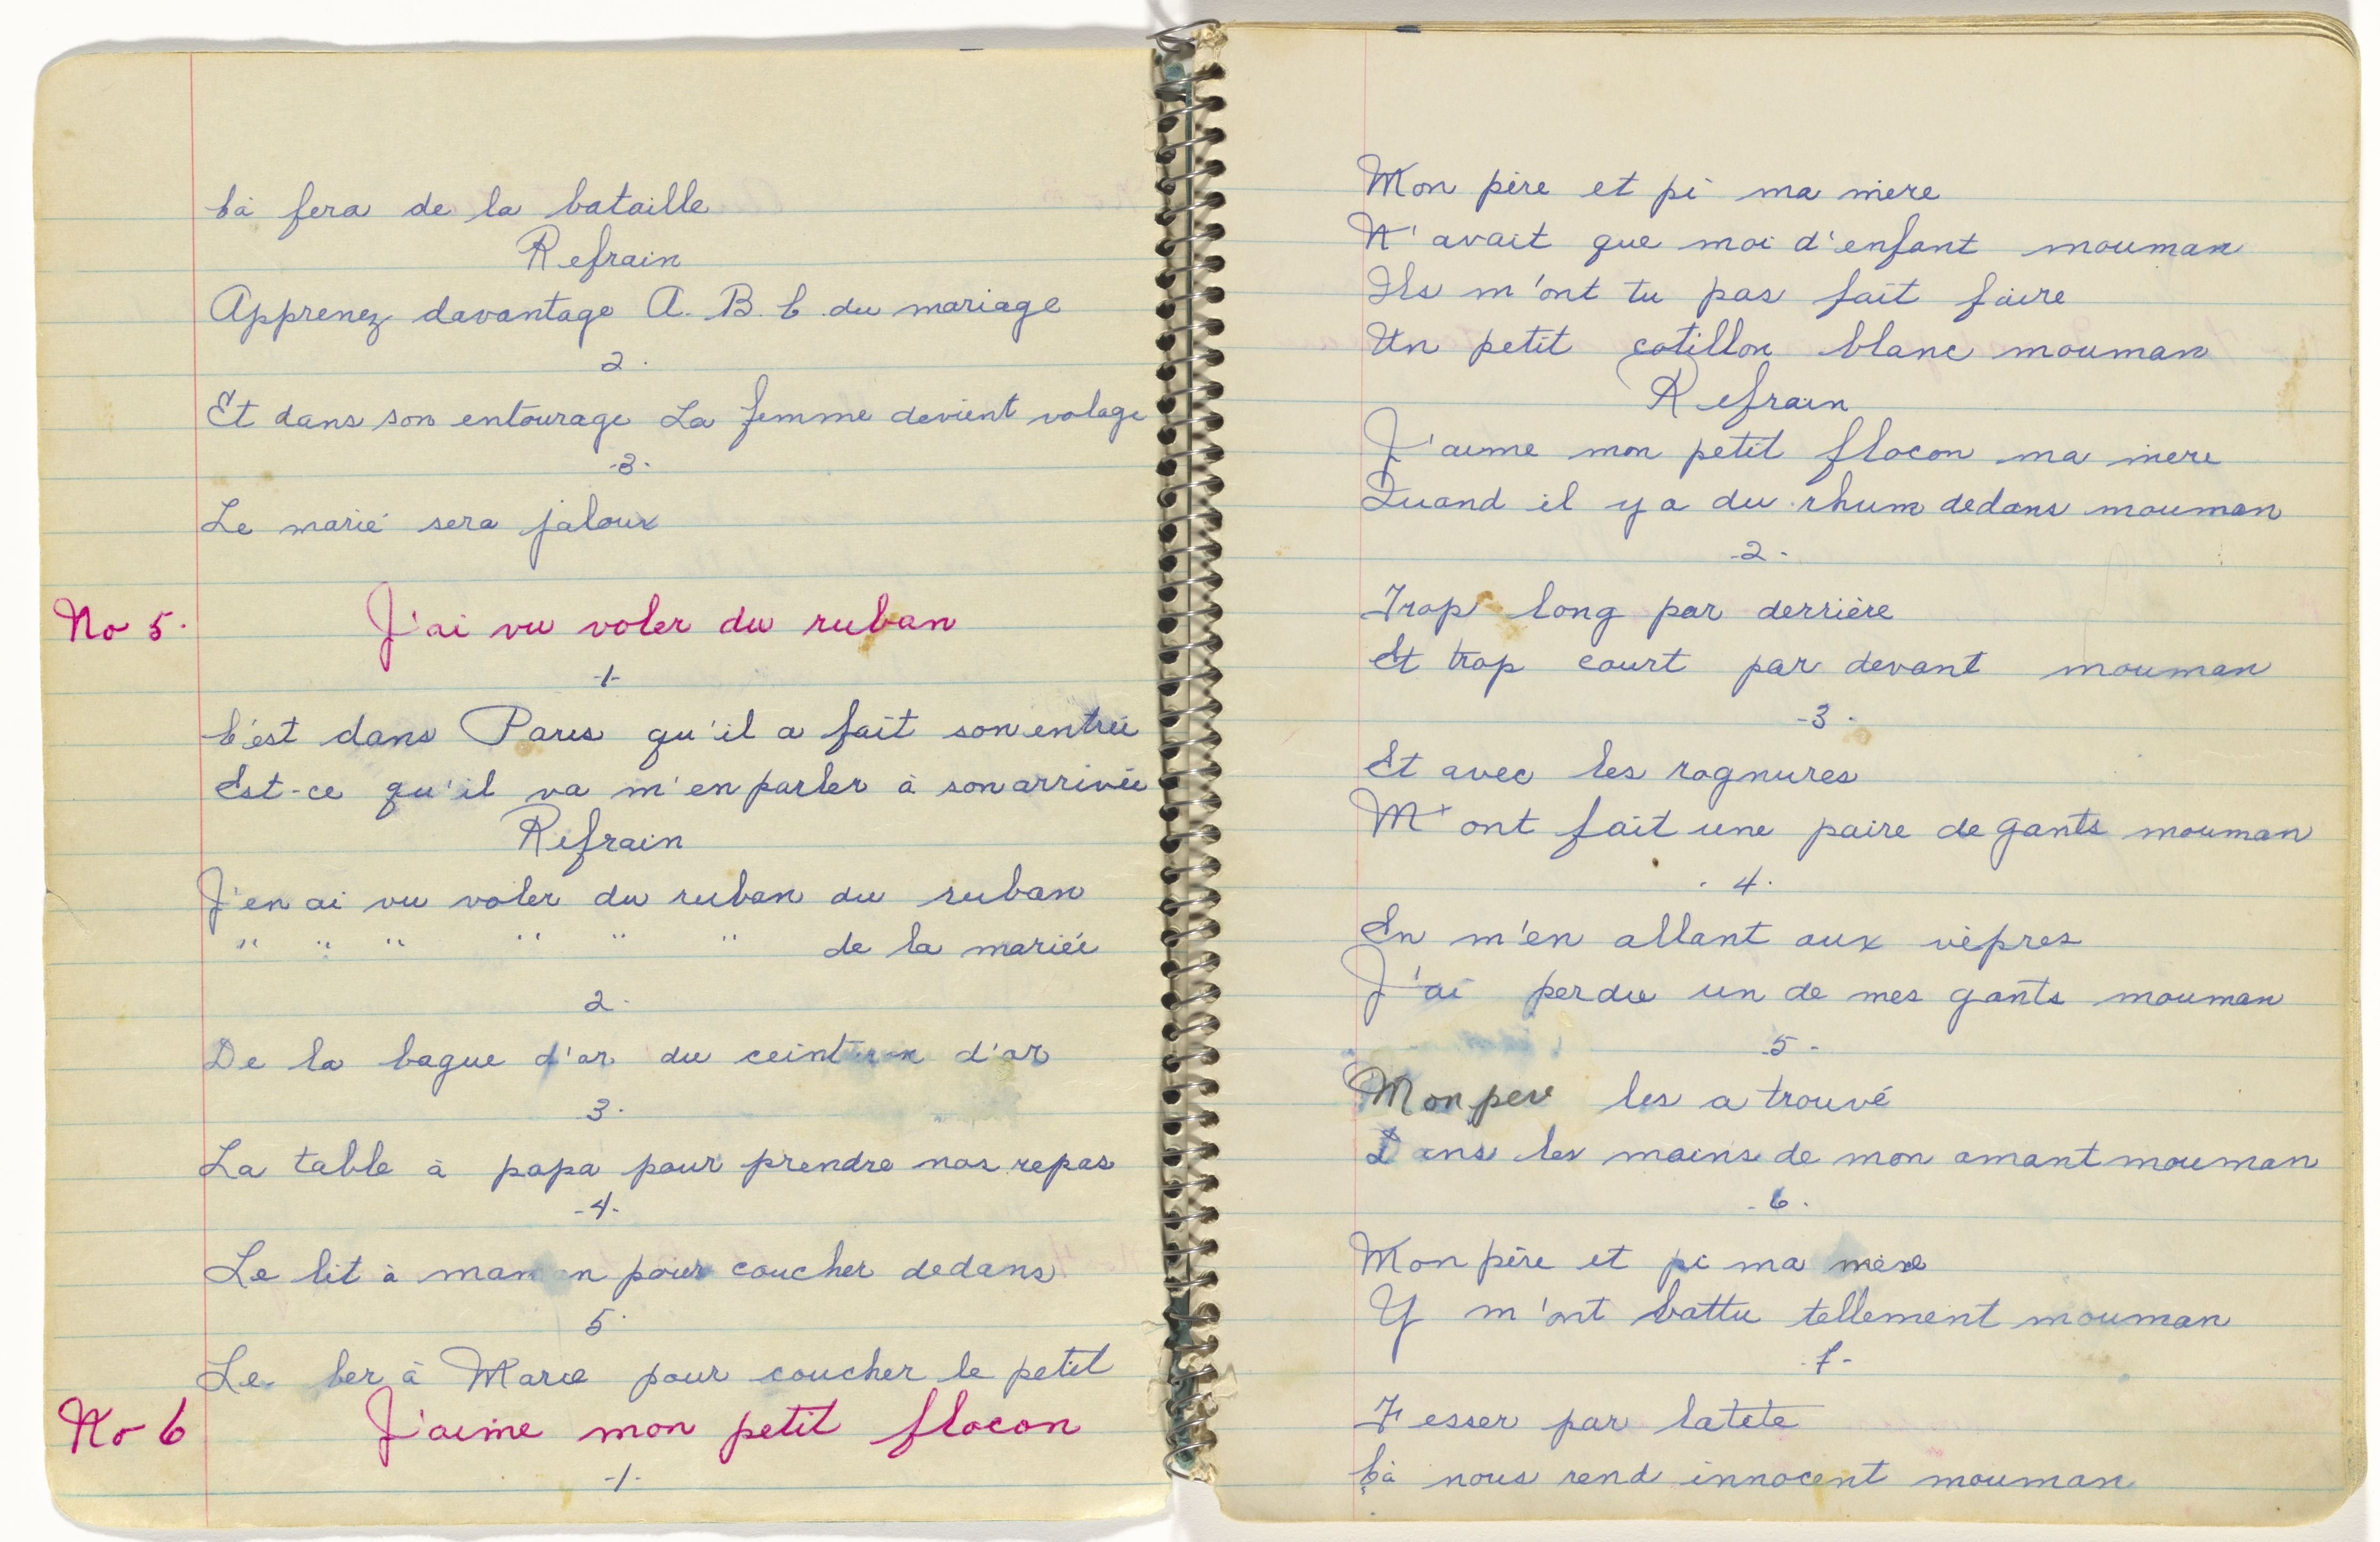 Cà fera de la bataille
Refrain
Apprenez davantage A. B. C. du mariage
2.
Et dans son entourage La femme devient volage
-3-
Le marié sera jaloux
No 5. J'ai vu voler du ruban
-1-
C'est dans Paris qu'il a fait son entrée
Est-ce qu'il va m'en parler à son arrivée
Refrain
J'en ai vu voler du ruban du ruban
" " " " " " de la mariée
2.
De la bague d'or du ceinturon d'or
3.
La table à papa pour prendre nos repas
-4-
Le lit à maman pour coucher dedans
5.
Le ber à Marie pour coucher le petit
No 6 J'aime mon petit flocon
-1-
Mon père et pi ma mère
N'avait que moi d'enfant mouman
Ils m'ont tu pas fait faire
Un petit cotillon blanc mouman
Refrain
J'aime mon petit flocon ma mère
Quand il y a du rhum dedans mouman
-2-
Trop long par derrière
Et trop court par devant mouman
-3-
Et avec les rognures
M'ont fait une paire de gants mouman
.4.
En m'en allant aux vèpres
J'ai perdu un de mes gants mouman
.5-
Mon per les a trouvé
Dans les mains de mon amant mouman
-6.
Mon père et pi ma mère
Y m'ont battu tellement mouman
-7-
Fesser par la tete
Cà nous rend innocent mouman